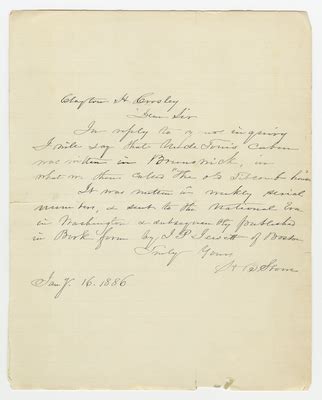 Clayton H Crosley
Dear Sir
In reply to your inquiry
I will say that Uncle Tom's Cabin
was written in Brunswick, in
what was then called "the old Titcomb house
It was written in weekly serial
numbers, & sent to the National Era
in Washington & subsequently published
in Book form by J P Jewett of Boston
Truly Yours
H B Stowe
Jan'y. 16. 1886